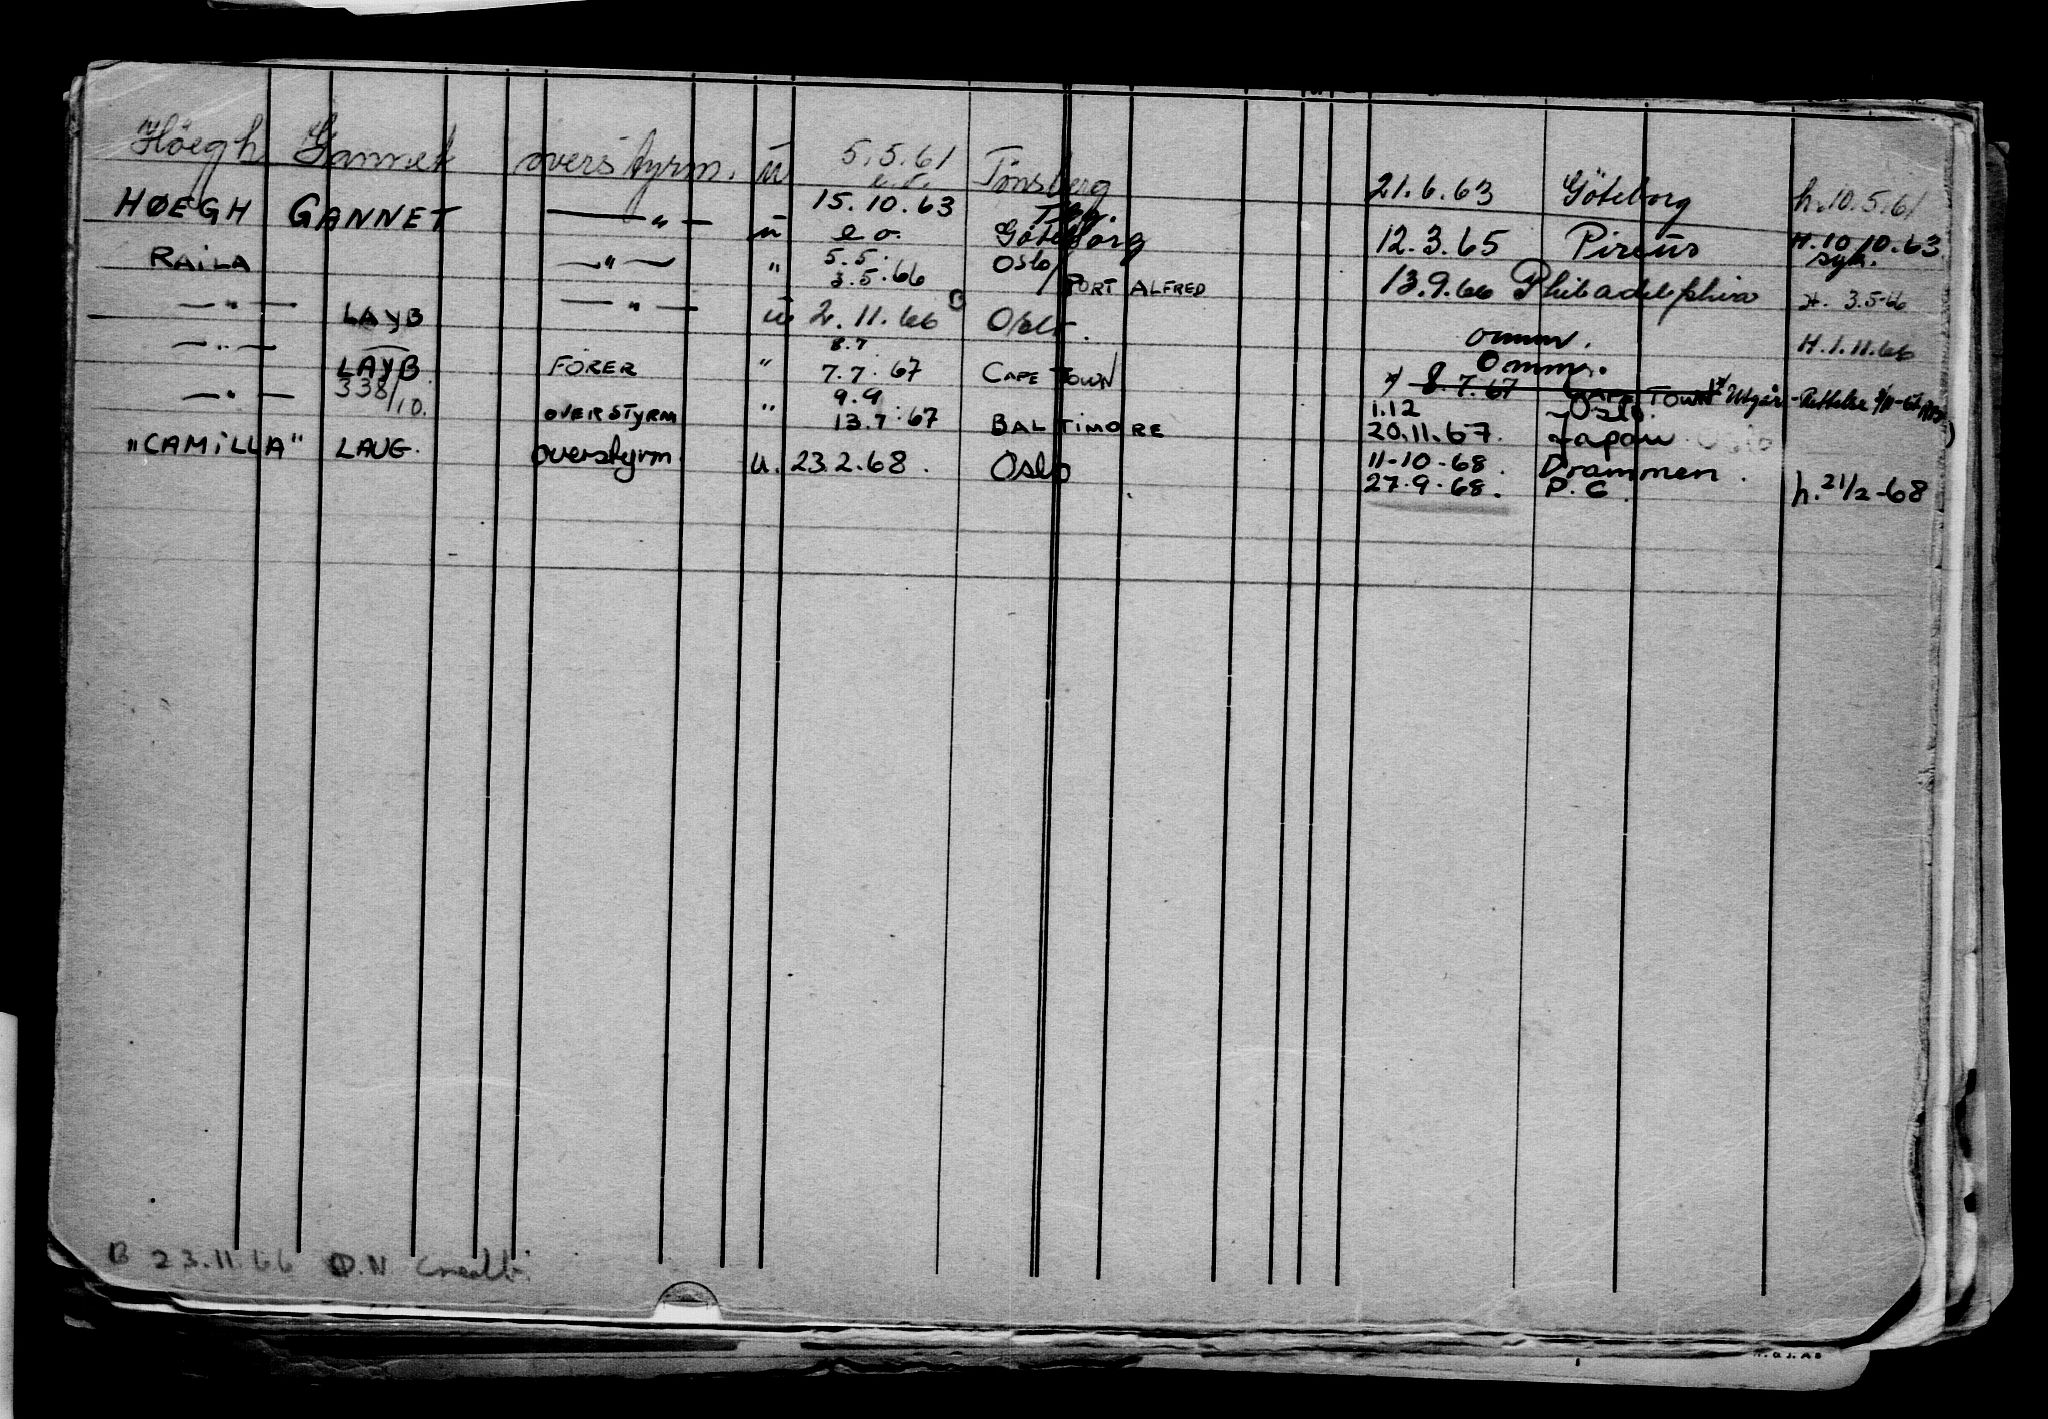 Höegh Gannet overstyrm. u 5.5.61 e.o. Tønsberg 21.6.63 Göteborg h.10.5.61
HØEGH GANNET —"— u 15.10.63 e o. Tbg. Göteborg 12.3.65 Pireus H.10.10.63 syk.
RAILA —"— " 5.5. 3.5.66 OSLO/PORT ALFRED 13.9.66 Philadelphia H. 3.5.66
—"— LAYB —"— u 2.11.66 Oslo. omm. H.1.11.66
—"— LAYB FÖRER " 8.7 7.7.67 CAPE TOWN Omm. 8.7.67 CAPE TOWN Utgår - Rettelse
—"— 338/10. OVERSTYRM " 9.9 13.7.67 BALTIMORE 1.12 Oslo. 20.11.67. Japan. Oslo
"CAMILLA" LAUG. Overstyrm. u. 23.2.68. Oslo 11-10-68. Drammen. h. 21/2-68
27.9.68. P.G.
B 23.11.66 O.N.